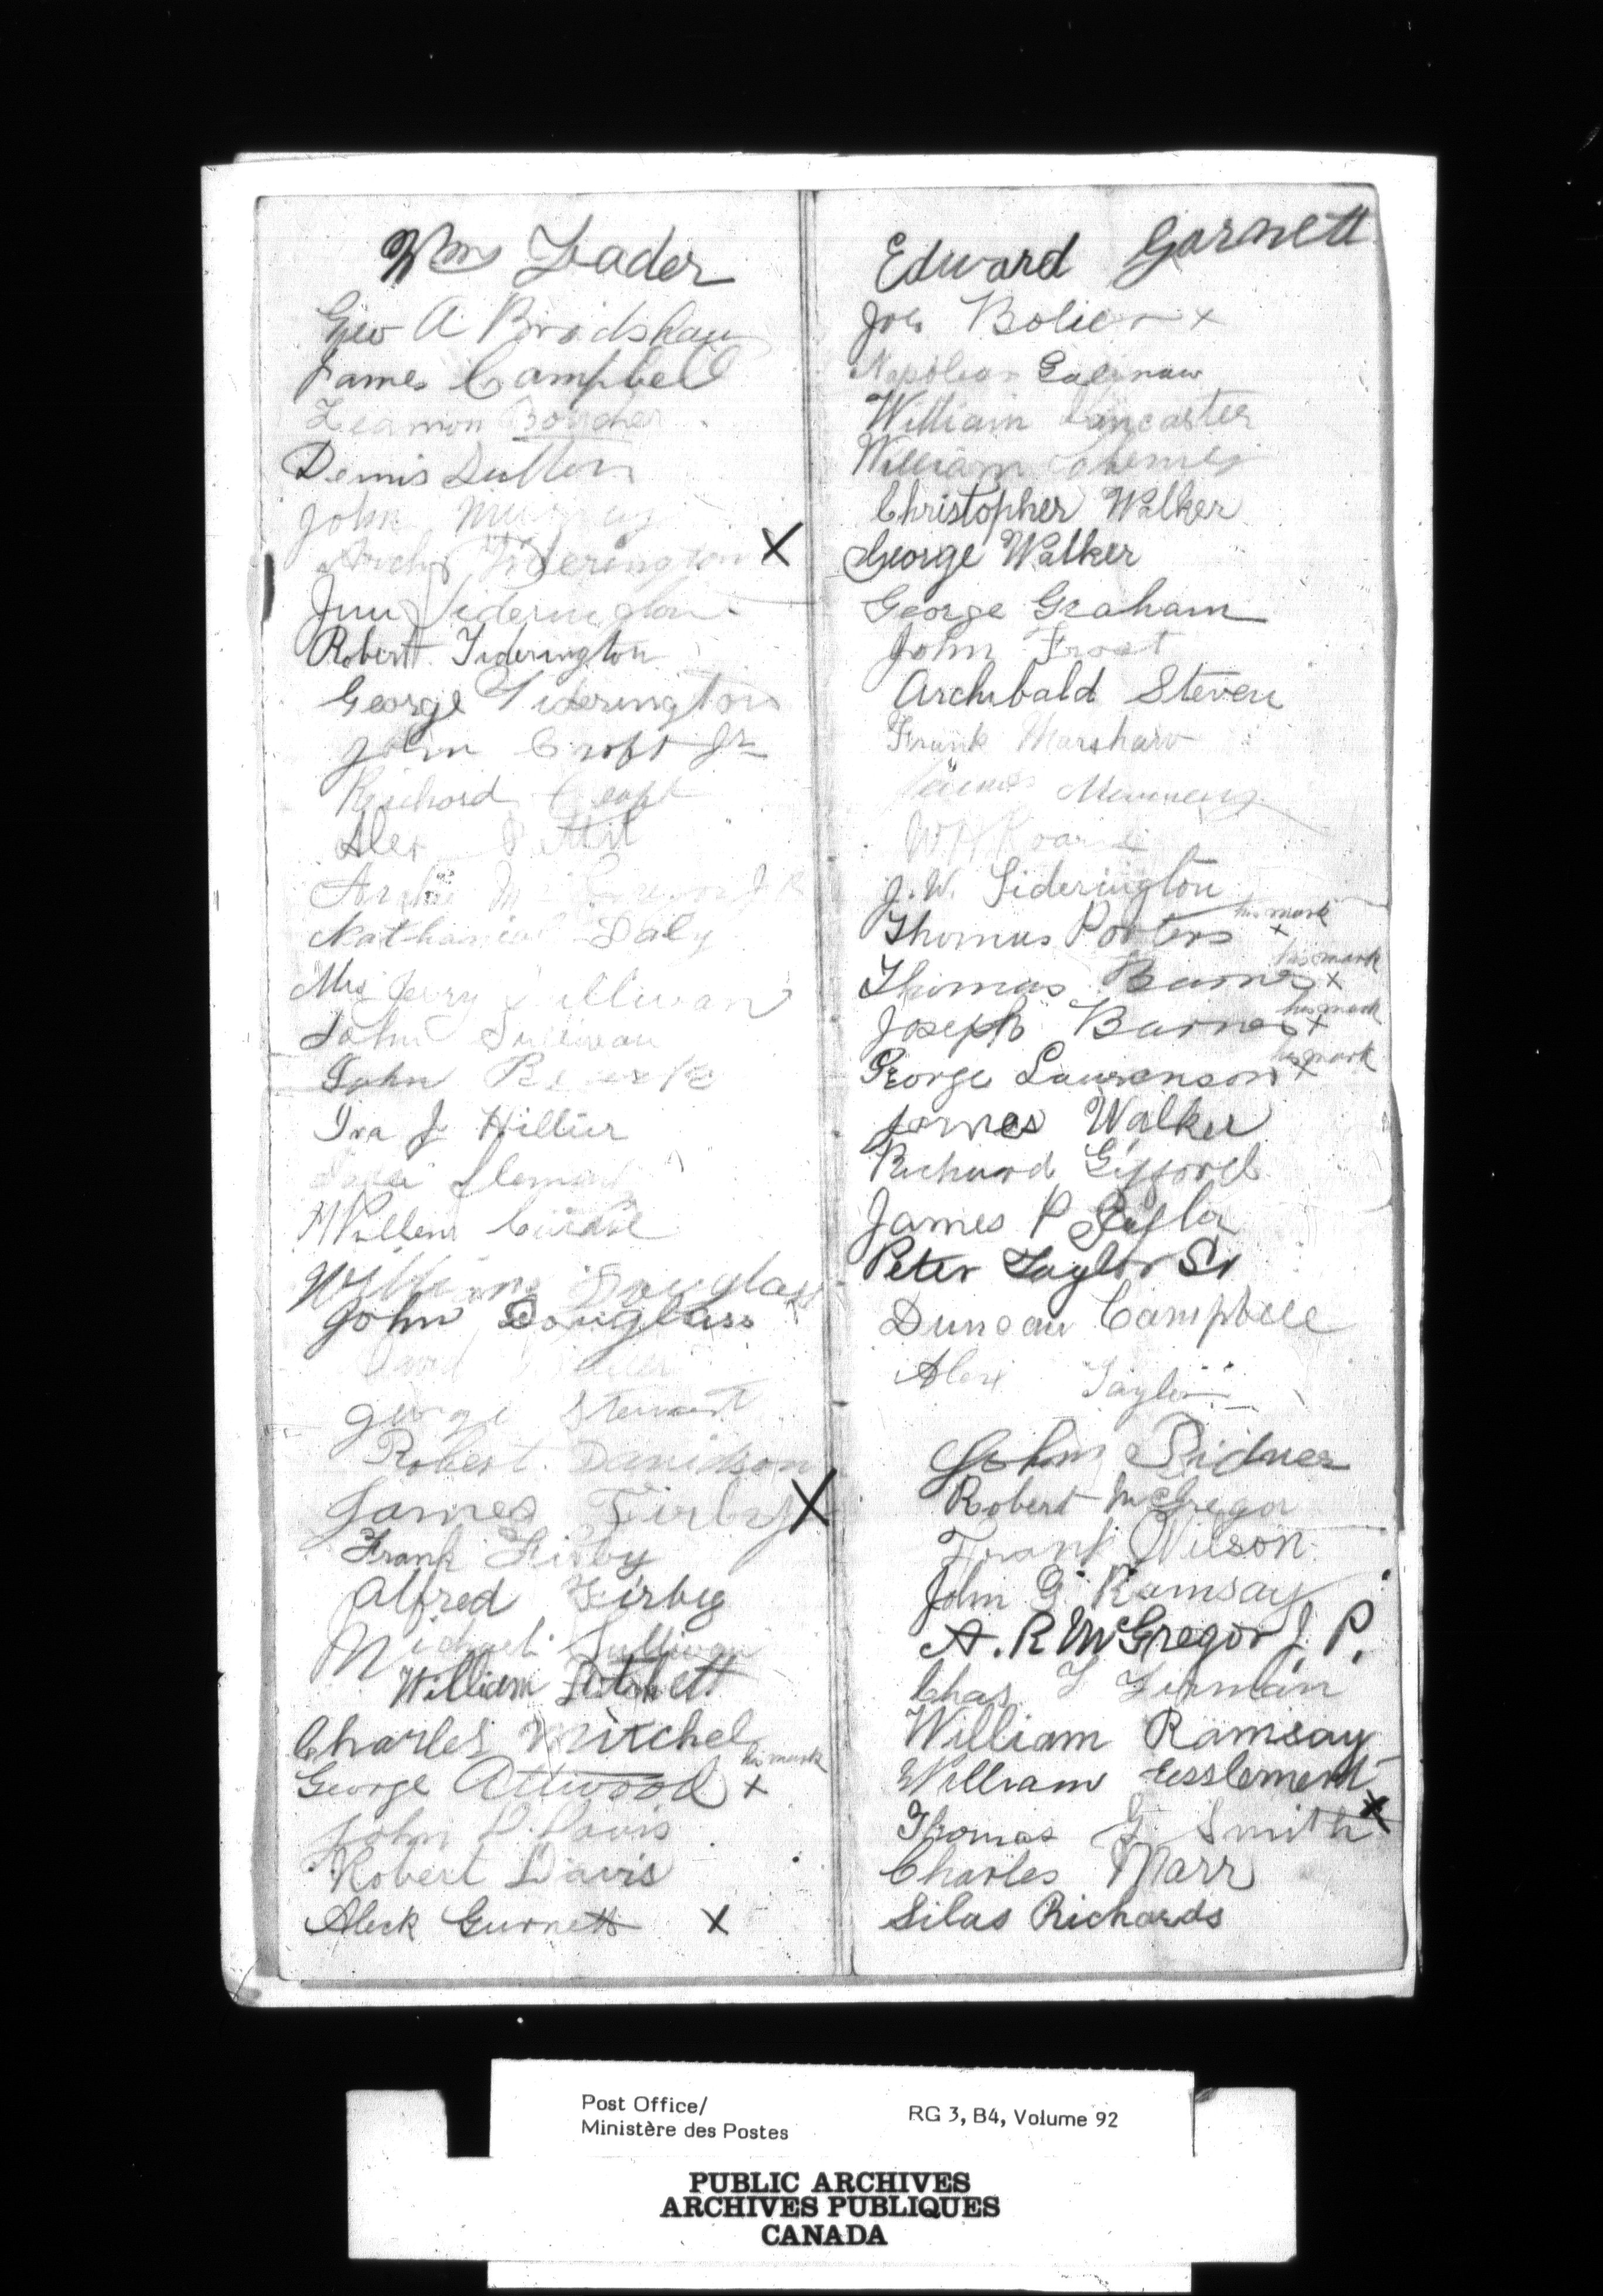 Wm Leader
Geo A Bradshaw
James Campbell
Leamon Boucher
Demis Dutton
John Murray
Archy Tiderington X
Tiderington
Robert Tiderington
George Tiderington
John Croft Jr
Richard Croft
Alex Pettit
Archie Mc Gregor J R
Nathaniel Daly
Mrs Jerry Sullivan
John Sullivan
John
Ira J Hillier
William
William Douglass
John Douglass
David
George Stewart
Robert Davidson
James Firby X
Frank Firby
Alfred Firby
Michael Sullivan
William
Charles Mitchel
George Attwood his mark x
John P. Davis
Robert Davis
Aleck Gurnett X
Edward Garnett
Joe Bolier x
Napoleon
William Lancaster
William
Christopher Walker
George Walker
George Graham
John Frost
Archibald Steven
Frank Marshaw
James
W H
J. W. Tiderington
Thomas Porters his mark x
Thomas Barnes his mark x
Joseph Barnes his mark x
George Laurenson his mark x
James Walker
Richard Gifford
James P Taylor
Peter Taylor Sr
Duncan Campbell
Alex Taylor
John Ridner
Robert McGregor
Frank Wilson
John G. Ramsay
A. R McGregor J. P.
Chas L Firman
William Ramsay
William Eesslement
Thomas G. Smith X
Charles Marr
Silas Richards
Post Office/ RG 3, B4, Volume 92
Ministère des Postes
PUBLIC ARCHIVES
ARCHIVES PUBLIQUES
CANADA